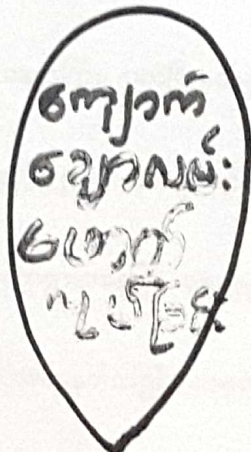 ကျောက်
ချောလမ်း
ဖောက်